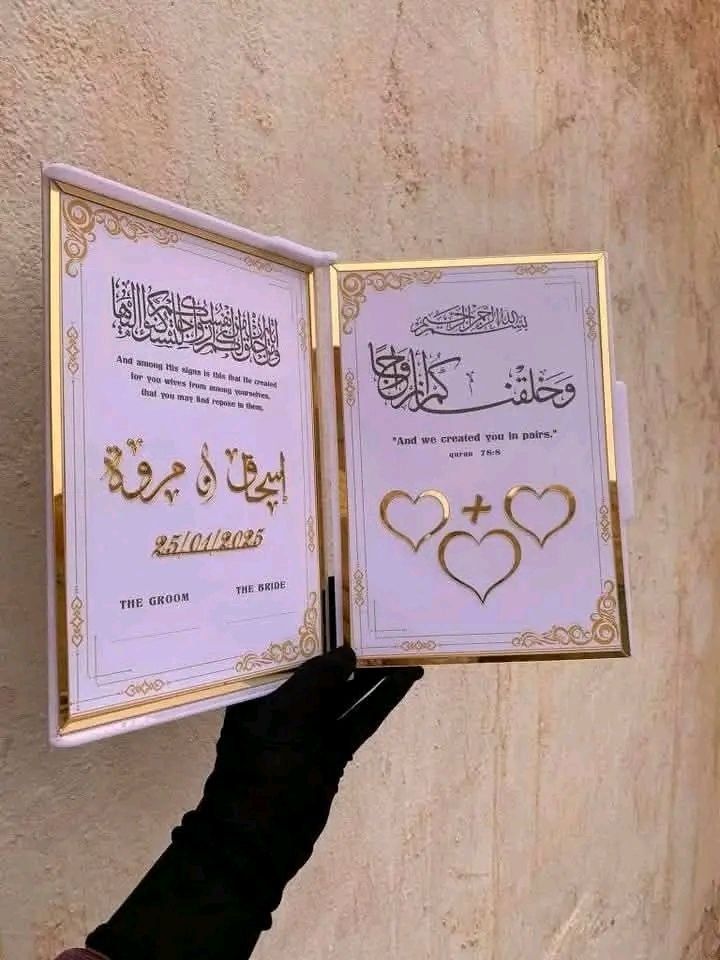 ومن آياته أن خلق لكم من أنفسكم أزواجا لتسكنوا إليها
And among His signs is this that He created
for you wives from among yourselves,
that you may find repose in them.
إسحاق و مروة
THE GROOM THE BRIDE
بسم الله الرحمن الرحيم
وَخَلَقْنَاكُمْ أَزْوَاجًا
"And we created you in pairs."
quran 78:8
+